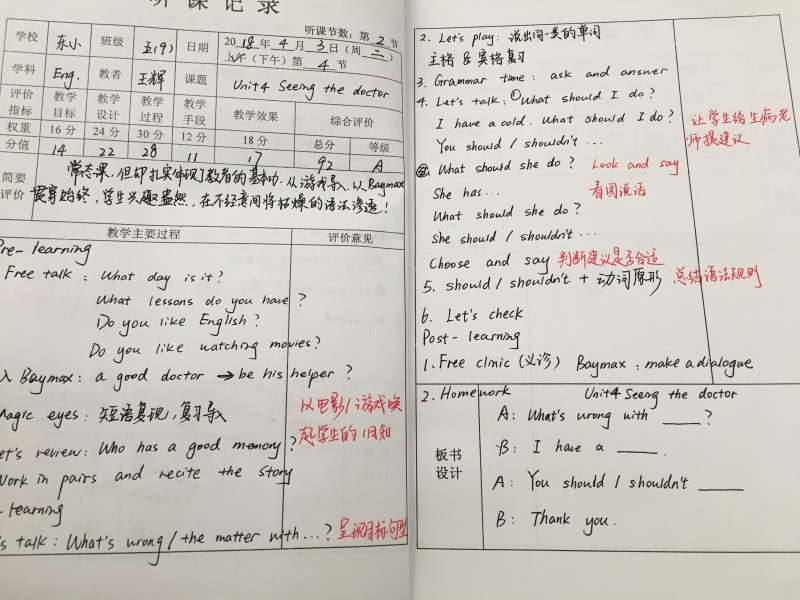 听课记录
听课节数：第 2 节
学校 东小 班级 五(9) 日期 2018年4月3日(周二)
上午(下午)第 4 节
学科 Eng. 教者 王辉 课题 Unit4 Seeing the doctor
评价指标 教学目标 教学设计 教学过程 教学手段 教学效果 综合评价
权重 16分 24分 30分 12分 18分 总分 等级
分值 14 22 28 11 17 92 A
简要评价
常态课，但却扎实体现了教者的基本功.从游戏导入,以Baymax
贯穿始终，学生兴趣盎然，在不经意间将枯燥的语法渗透！
教学主要过程 评价意见
Pre-learning
Free talk: What day is it?
What lessons do you have?
Do you like English?
Do you like watching movies?
入 Baymax: a good doctor → be his helper?
Magic eyes: 短语复现，复习导入
以电影/游戏唤
起学生的旧知
Let's review: Who has a good memory?
Work in pairs and recite the story
-learning
's talk: What's wrong / the matter with...? 呈现目标句型
2. Let's play: 说出同一类的单词
主格 & 宾格复习
3. Grammar time: ask and answer
4. Let's talk: ① What should I do?
I have a cold. What should I do?
You should / shouldn't...
让学生给生病老
师提建议
② What should she do? Look and say
She has... 看图说话
What should she do?
She should / shouldn't...
Choose and say 判断建议是否合适
5. should / shouldn't + 动词原形 总结语法规则
6. Let's check
Post-learning
1. Free clinic (义诊) Baymax: make a dialogue
2. Homework
板书设计
Unit4 Seeing the doctor
A: What's wrong with ____?
B: I have a ____.
A: You should / shouldn't ____
B: Thank you.